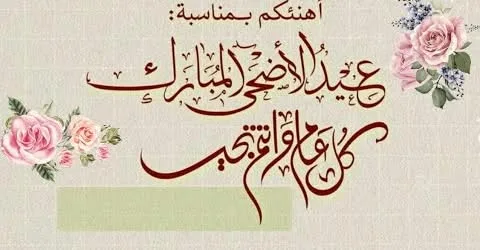 أهنئكم بمناسبة:
عيد الأضحى المبارك
كل عام وأنتم بخير